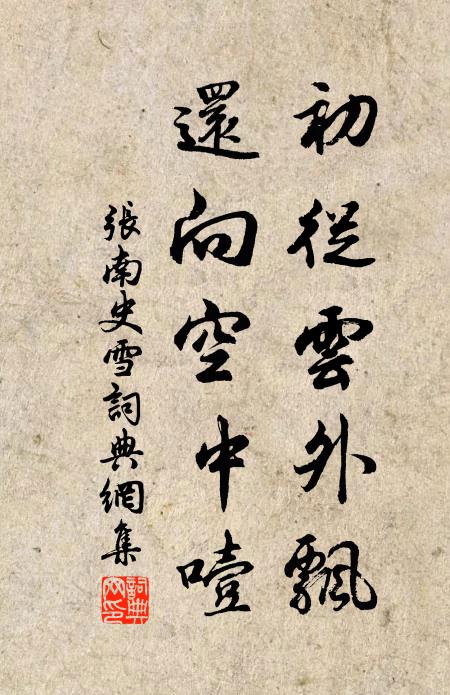 初從雲外飄
還向空中噎
張南史雪詞典網集
詞典网印